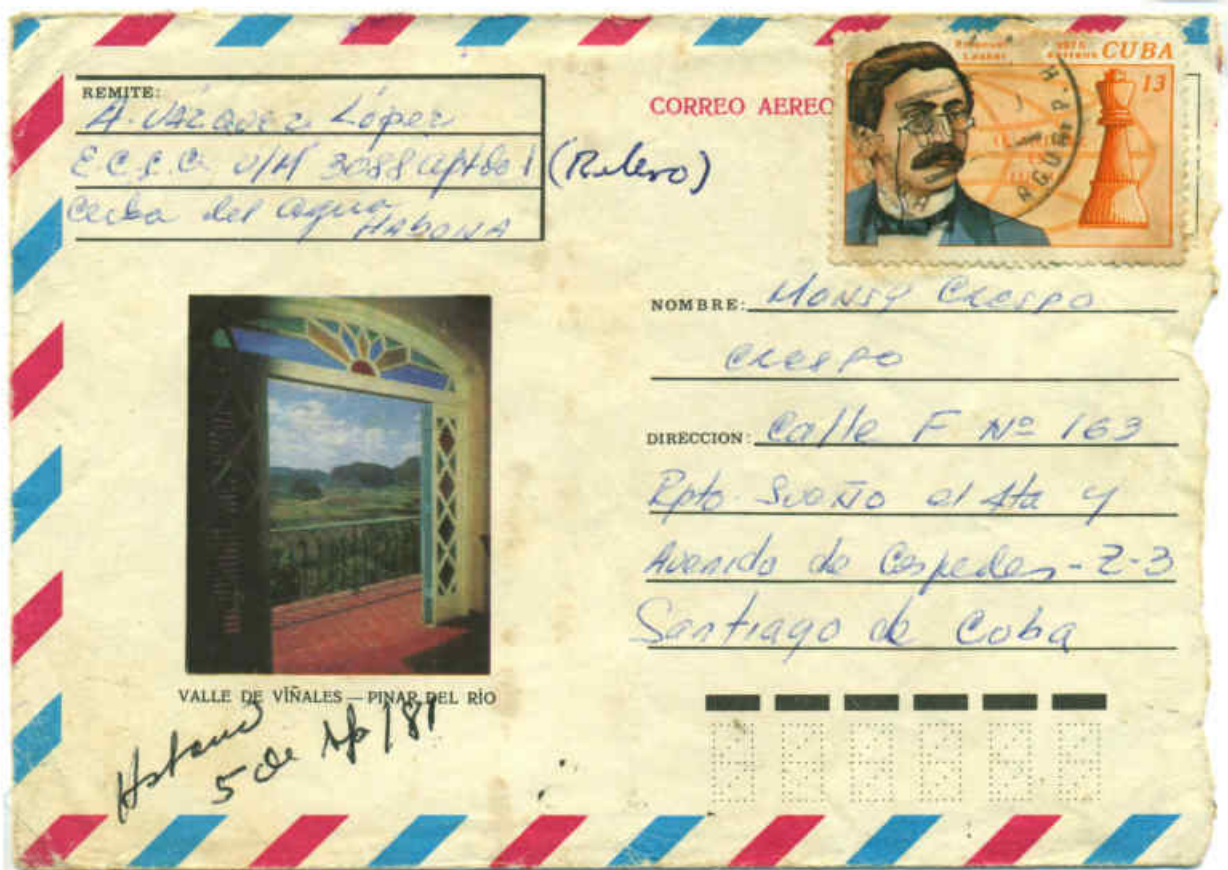 REMITE:
A. Vázquez López
E.C.S.C. U/M 3088 aptdo 1 (Relevo)
Ceiba del agua
HABANA
CORREO AEREO
CUBA
13
NOMBRE: Monsy Crespo
Crespo
DIRECCION: Calle F Nº 163
Rpto. Sueño e/ 4ta y
Avenida de Cespedes - Z-3
Santiago de Cuba
VALLE DE VIÑALES — PINAR DEL RÍO
Habana
5 de